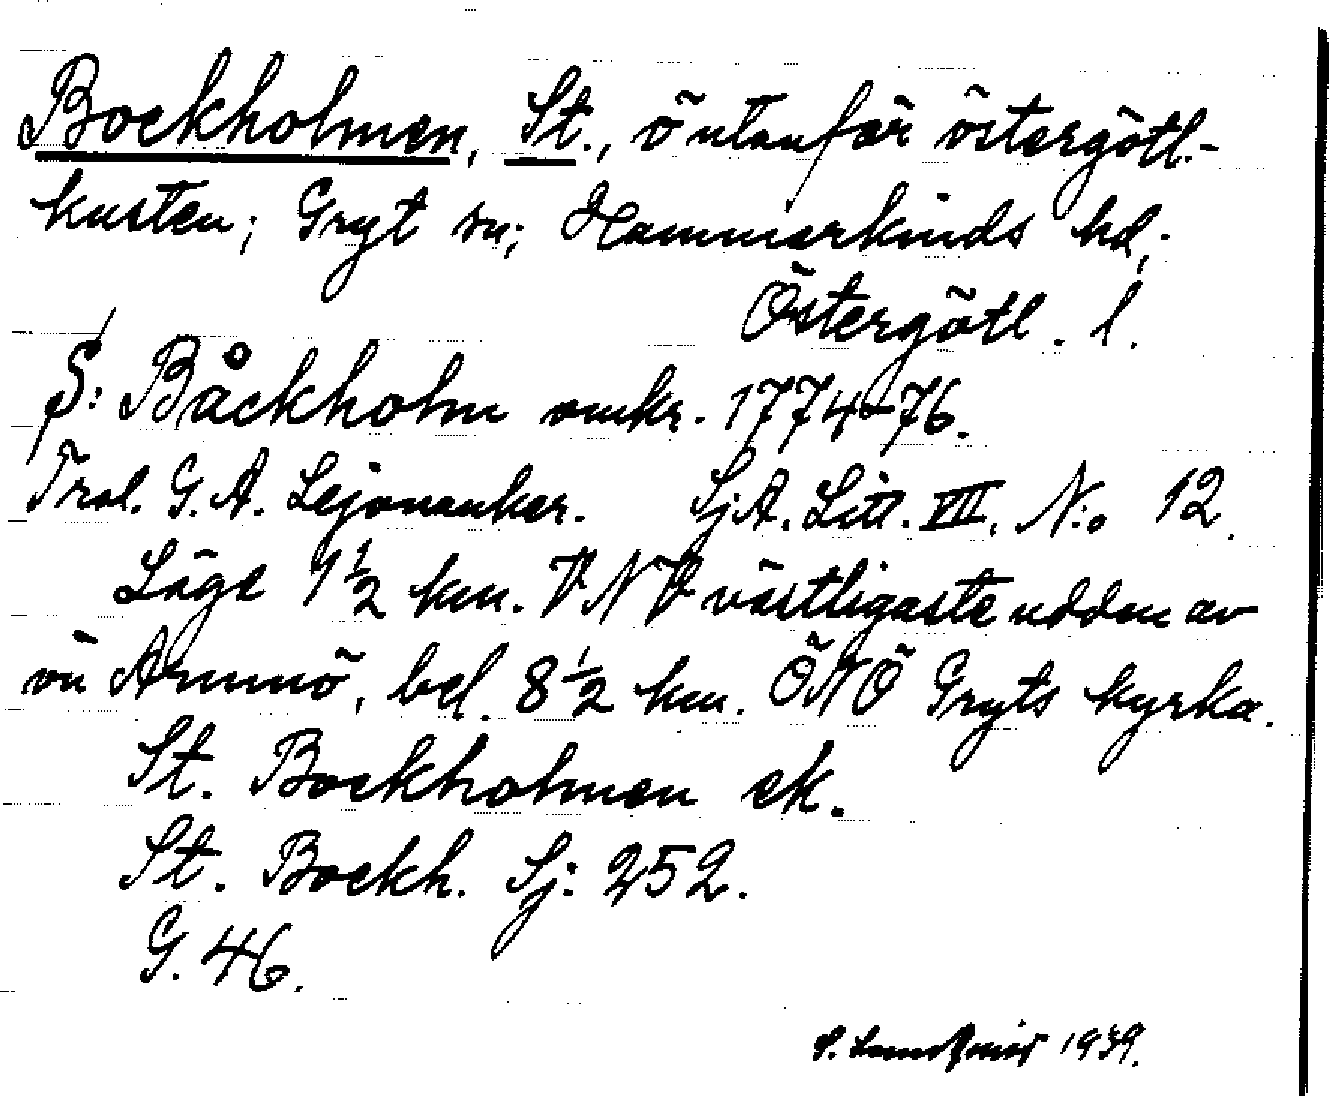 Bockholmen, St., ö utanför östergötl.-
kusten; Gryt sn; Hammarkinds hd;
Östergötl. l.
S: Båckholm omkr. 1774-76.
Trol. G. A. Lejonanker. SjA. Litt. VII. N:o 12.
Läge 1 1/2 km. VNV västligaste udden av
ön Ammnö, bel. 8 1/2 km. ÖNÖ Gryts kyrka.
St. Bockholmen ek.
St. Bockh. Sj: 252.
G. 46.
1939.